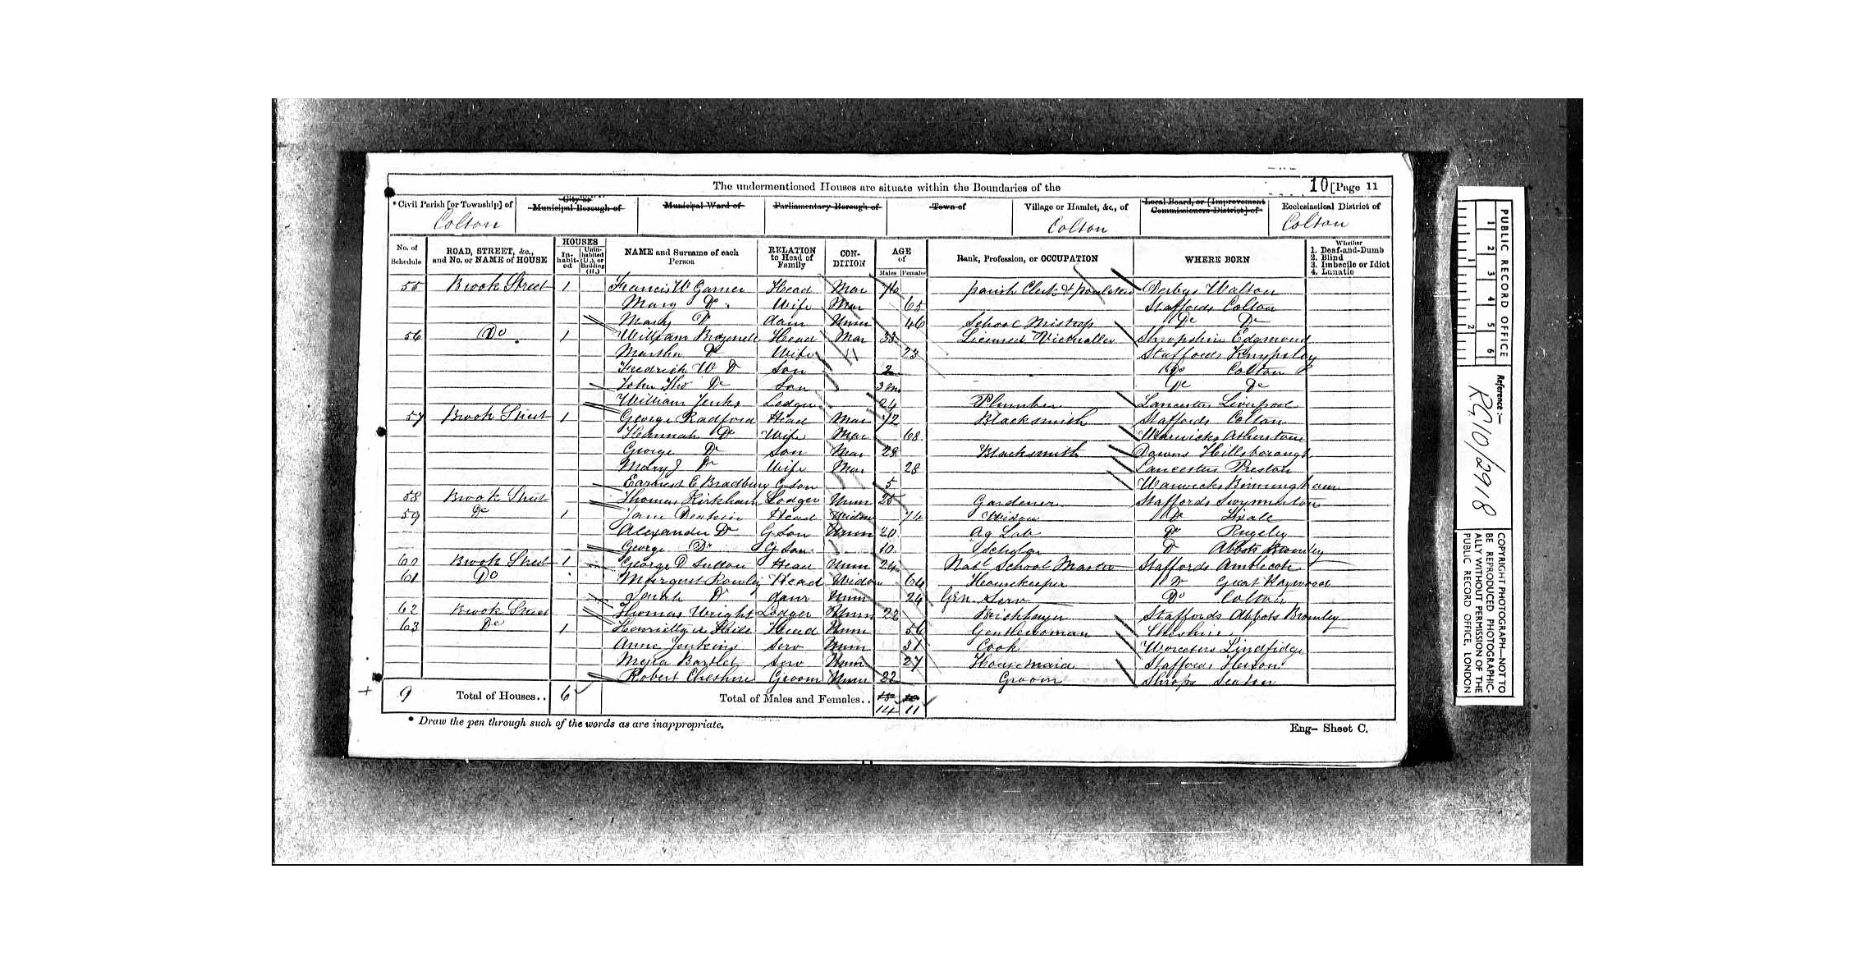 The undermentioned Houses are situate within the Boundaries of the
10 [Page 11
* Civil Parish [or Township] of
City or Municipal Borough of
Municipal Ward of
Parliamentary Borough of
Town of
Village or Hamlet, &c., of
Local Board, or [Improvement Commissioners District] of
Ecclesiastical District of
Colton Colton Colton
No. of Schedule
ROAD, STREET, &c., and No. or NAME of HOUSE
HOUSES
Inhabited
Uninhabited (U.), or Building (B.)
NAME and Surname of each Person
RELATION to Head of Family
CONDITION
AGE of
Males Females
Rank, Profession, or OCCUPATION
WHERE BORN
Whether
1. Deaf-and-Dumb
2. Blind
3. Imbecile or Idiot
4. Lunatic
55 Brook Street 1 Francis W Garner Head Mar 76 Parish Clerk & Derbys Walton
Mary Do Wife Mar 65 Staffords Colton
Mary D daur Unm 46 School Mistress Do Do
56 Do 1 William Head Mar 33 Licensed Victualler Shropshire Edgmond
Martha D Wife 23 Staffords
Fredrick W D Son 2 Do Colton
John Tho D Son 3m Do Do
William Lodger 24 Plumber Lancaster Liverpool
57 Brook Street 1 George Radford Head Mar 72 Blacksmith Staffords Colton
Hannah D Wife Mar 68 Warwicks Atherstone
George D Son Mar 28 Blacksmith Downs Hillsborough
Mary J D Wife Mar 28 Lancaster Preston
Earnest E Bradbury G son 5 Warwicks Birmingham
58 Brook Street Thomas Kirkham Lodger Unm 25 Gardener Staffords Swynnerton
59 Do 1 Jane Head Widow 74 Widow D Tixall
Alexander D G Son Unm 20 Ag Lab D Rugeley
George D G Son 10 Scholar D Abbots Bromley
60 Brook Street 1 George D Sutton Head Unm 24 Natl School Master Staffords Amblecote
61 Do Margaret Head Widow 64 Housekeeper D Great Haywood
Sarah D daur Unm 24 Gen Serv Do Colton
62 Brook Street Thomas Wright Lodger Unm 22 Staffords Abbots Bromley
63 Do 1 Henrietta Head Unm 56 Gentlewoman Cheshire
Anne Jenkins Serv Unm 31 Cook Worcesters Lindridge
Myra Bartlet Serv Unm 27 Housemaid Staffords
Robert Cheshire Groom Unm 22 Groom Shrops
9 Total of Houses.. 6 Total of Males and Females.. 14 11
* Draw the pen through such of the words as are inappropriate.
Eng- Sheet C.
PUBLIC RECORD OFFICE
1 2 3 4 5 6
1 2
Reference :-
RG10/2918
COPYRIGHT PHOTOGRAPH—NOT TO
BE REPRODUCED PHOTOGRAPHIC-
ALLY WITHOUT PERMISSION OF THE
PUBLIC RECORD OFFICE, LONDON